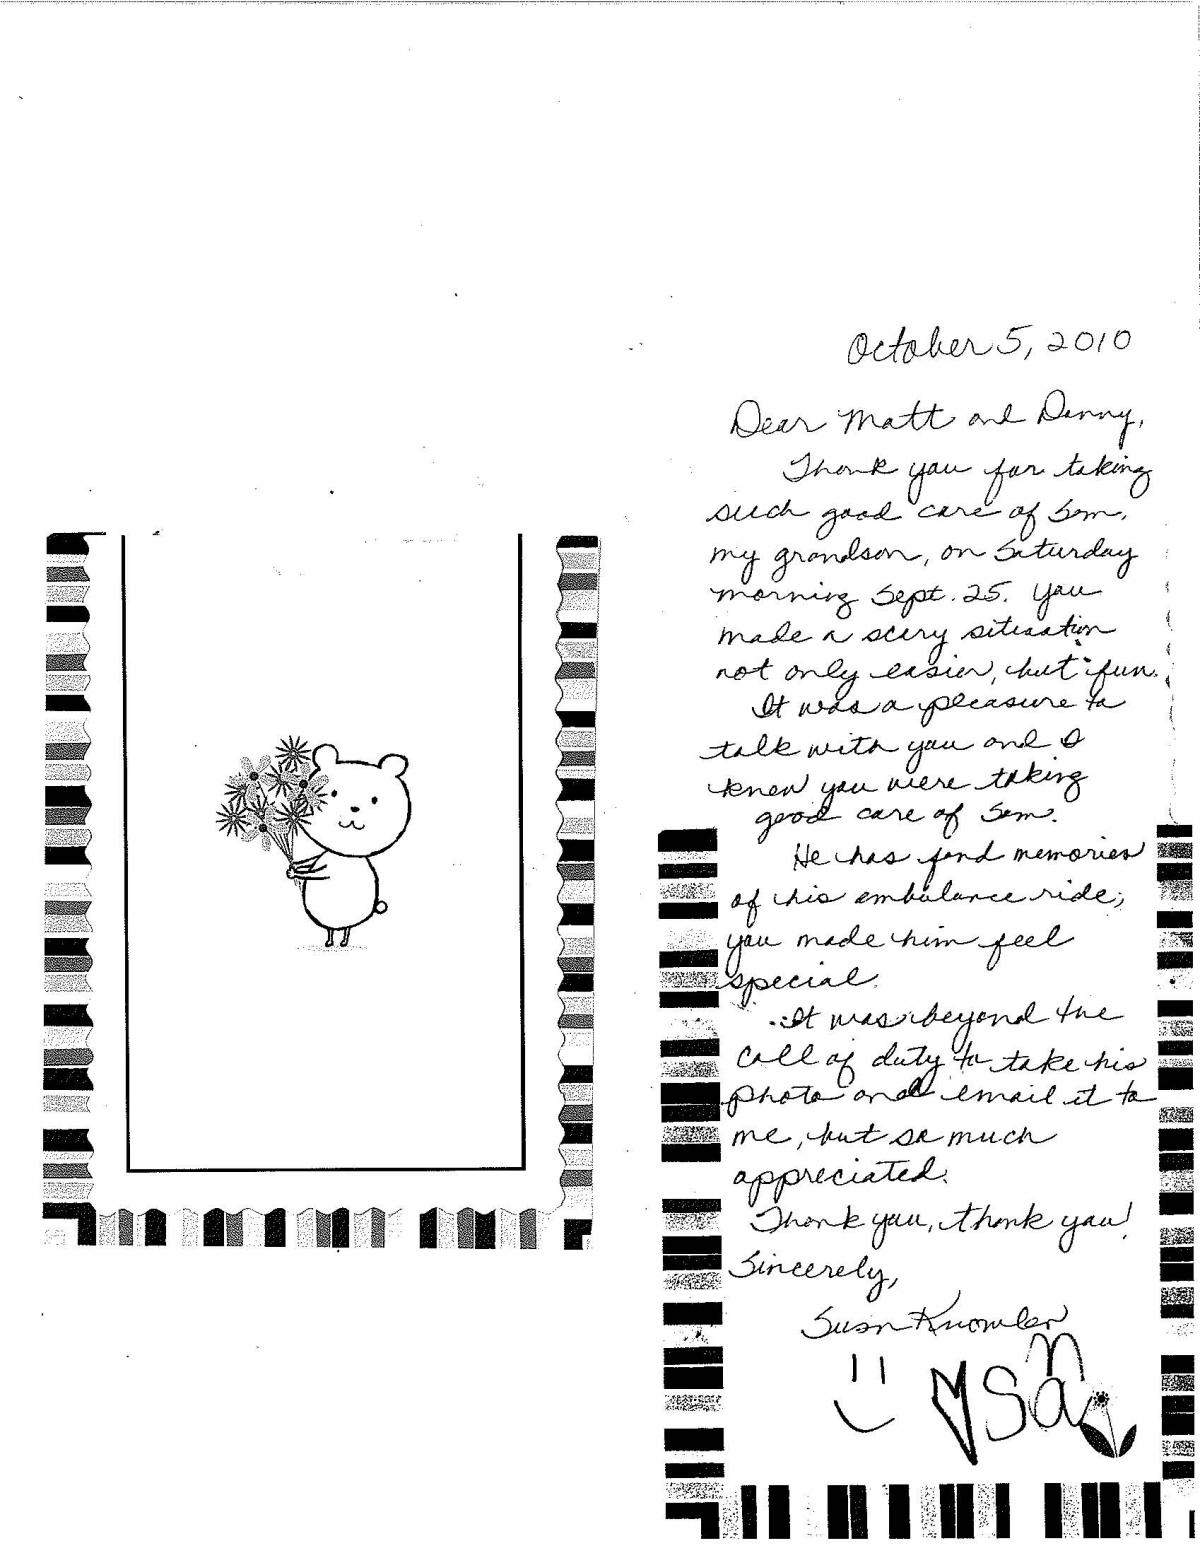 October 5, 2010
Dear Matt and Danny,
Thank you for taking
such good care of Sam,
my grandson, on Saturday
morning Sept. 25. You
made a scary situation
not only easier, but fun.
It was a pleasure to
talk with you and I
knew you were taking
good care of Sam.
He has fond memories
of his ambulance ride;
you made him feel
special.
It was beyond the
call of duty to take his
photo and email it to
me, but so much
appreciated.
Thank you, thank you!
Sincerely,
Susan